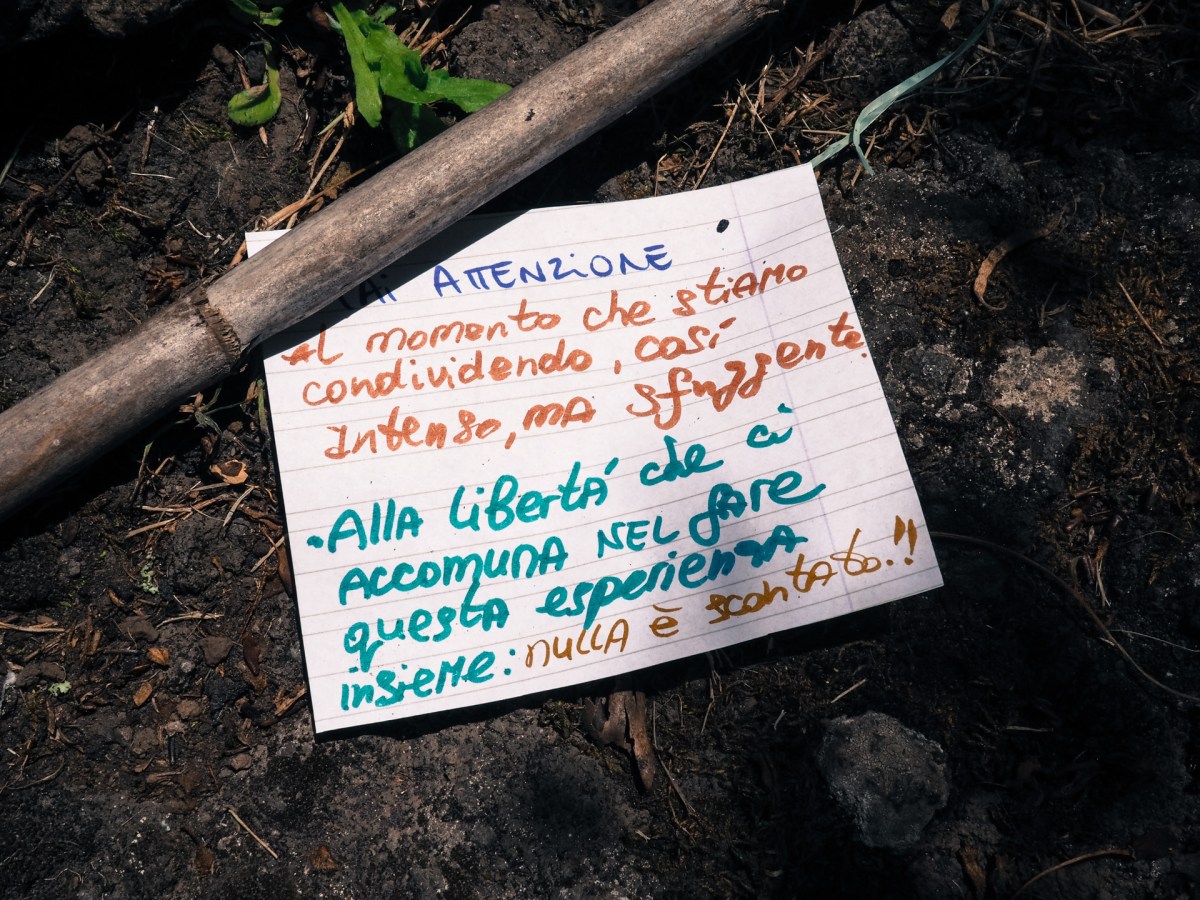 ATTENZIONE
Al momento che stiamo
condividendo, così
intenso, ma sfuggente.
• Alla libertà che ci
accomuna nel fare
questa esperienza
insieme: nulla è scontato!!